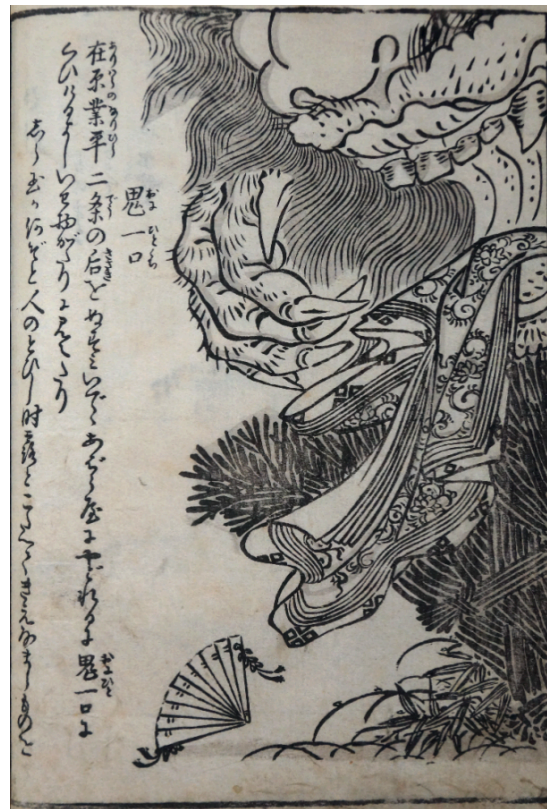 鬼一口
在原業平二条の后をぬすみいでゝあばら屋にやどれるに鬼一口に
くひけるよしいせ物がたりに見えたり
しら玉か何ぞと人のとひし時露とこたへてきえなましものを